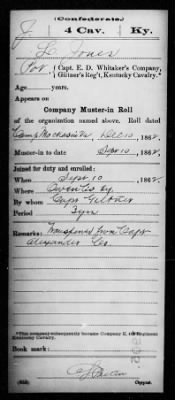 (Confederate.)
J 4 Cav. Ky.
Jones
Pvt., Capt. E. D. Whitaker's Company,
Giltner's Reg't, Kentucky Cavalry.*
Age years.
Appears on
Company Muster-in Roll
of the organization named above. Roll dated
Dec 10, 1862.
Muster-in to date Sept 10, 1862.
Joined for duty and enrolled:
When Sept 10, 1862.
Where Owen Co Ky.
By whom Capt Giltner
Period 3 yrs
Remarks: Transferred from Capt
Alexander Co.
*This company subsequently became Company E, 4th Regiment
Kentucky Cavalry.
Book mark:
Copyist.